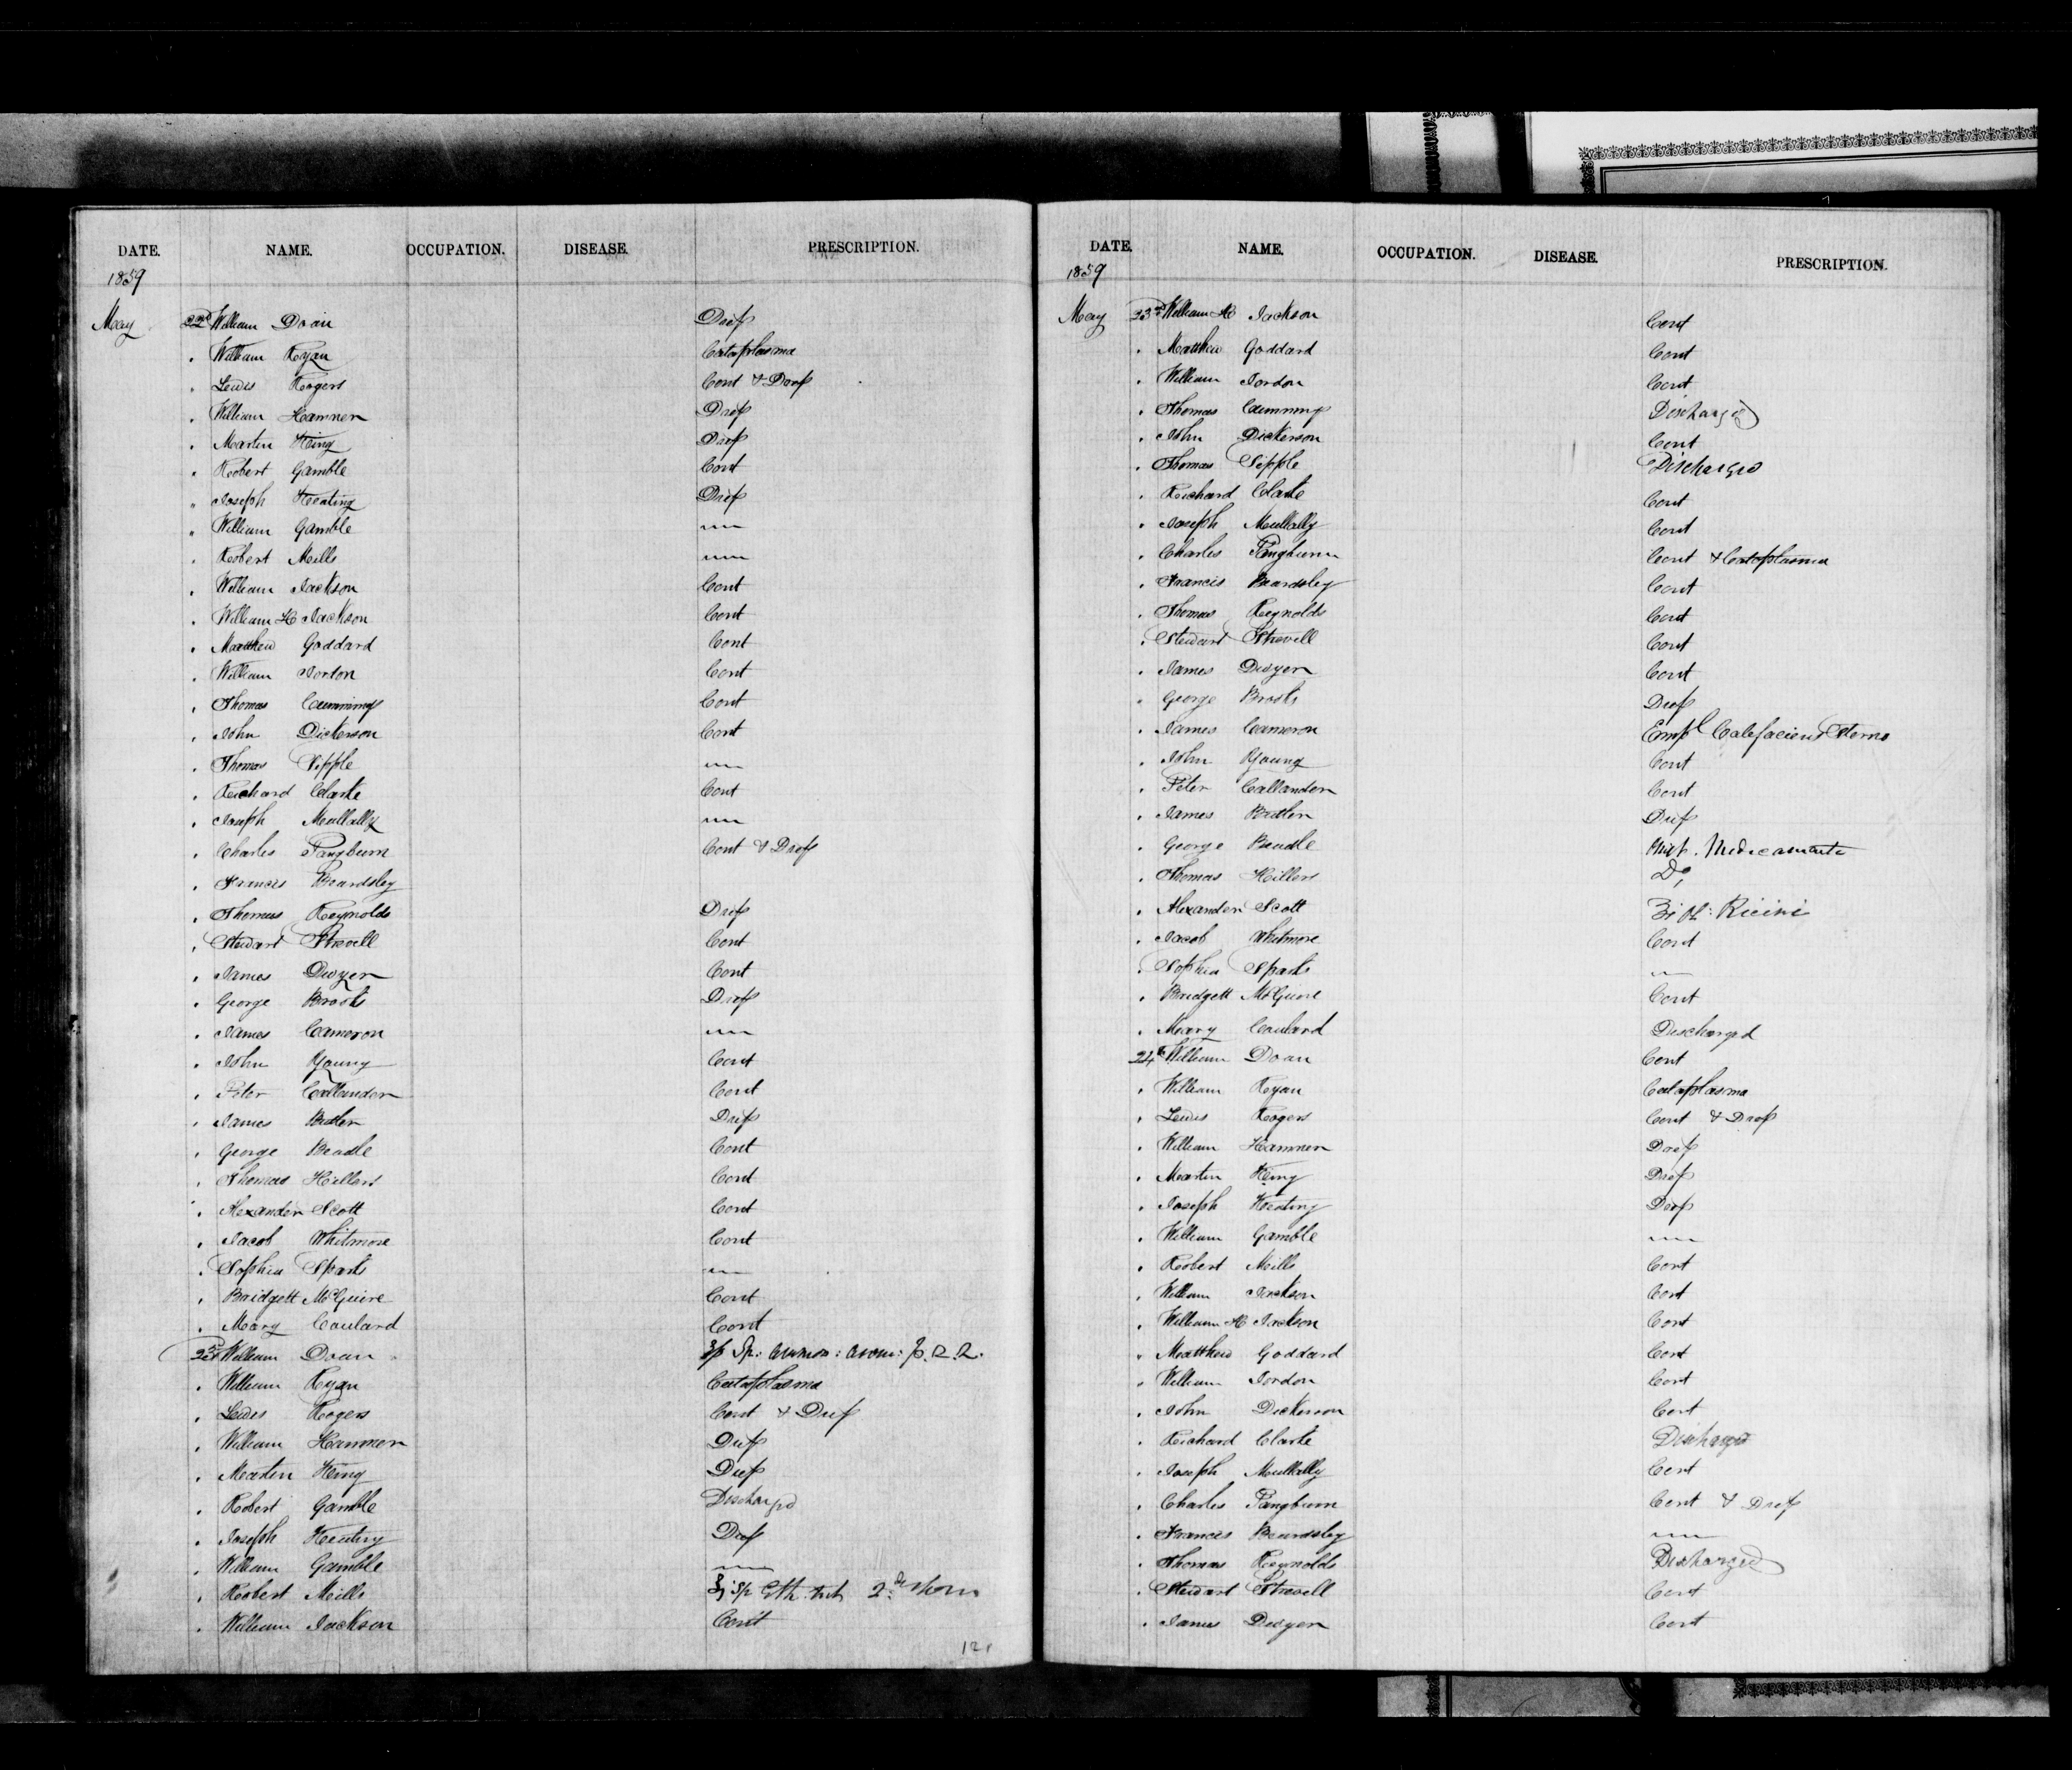 DATE. NAME. OCCUPATION. DISEASE. PRESCRIPTION.
1859
May 22d William Doan Drep
" William Ryan Cataplasma
" Lewis Rogers Cont & Drep
" William Hamner Drep
" Martin King Drep
" Robert Gamble Cont
" Joseph Keating Drep
" William Gamble
" Robert Mills
" William Jackson Cont
" William H Jackson Cont
" Matthew Goddard Cont
" William Jordon Cont
" Thomas Cummings Cont
" John Dickerson Cont
" Thomas Sipple
" Richard Clarke Cont
" Joseph Mullally
" Charles Pangburn Cont & Drep
" Francis Beardsley
" Thomas Reynolds Drep
" Stewart Strevell Cont
" James Dwyer Cont
" George Brooks Drep
" James Cameron
" John Young Cont
" Peter Callander Cont
" James Butler Drep
" George Beadle Cont
" Thomas Hillers Cont
" Alexander Scott Cont
" Jacob Whitmore Cont
" Sophia Sparks
" Bridgett McGuire Cont
" Mary Coulard Cont
23d William Doan Sp: Ammon: Arom:
" William Ryan Cataplasma
" Lewis Rogers Cont & Drep
" William Hamner Drep
" Martin King Drep
" Robert Gamble Discharged
" Joseph Keating Drep
" William Gamble
" Robert Mills Sp Eth. Nit
" William Jackson Cont
121
DATE. NAME. OCCUPATION. DISEASE. PRESCRIPTION.
1859
May 23d William H Jackson Cont
" Matthew Goddard Cont
" William Jordon Cont
" Thomas Cummings Discharged
" John Dickerson Cont
" Thomas Sipple Discharged
" Richard Clarke Cont
" Joseph Mullally Cont
" Charles Pangburn Cont & Cataplasma
" Francis Beardsley Cont
" Thomas Reynolds Cont
" Stewart Strevell Cont
" James Dwyer Cont
" George Brooks Drep
" James Cameron Empl Calefaciens Sterno
" John Young Cont
" Peter Callander Cont
" James Butler Drep
" George Beadle Medicamenta
" Thomas Hillers Do,
" Alexander Scott Ol: Ricini
" Jacob Whitmore Cont
" Sophia Sparks
" Bridgett McGuire Cont
" Mary Coulard Discharged
24th William Doan Cont
" William Ryan Cataplasma
" Lewis Rogers Cont & Drep
" William Hamner Drep
" Martin King Drep
" Joseph Keating Drep
" William Gamble
" Robert Mills Cont
" William Jackson Cont
" William H Jackson Cont
" Matthew Goddard Cont
" William Jordon Cont
" John Dickerson Cont
" Richard Clarke Discharged
" Joseph Mullally Cont
" Charles Pangburn Cont & Drep
" Francis Beardsley
" Thomas Reynolds Discharged
" Stewart Strevell Cont
" James Dwyer Cont